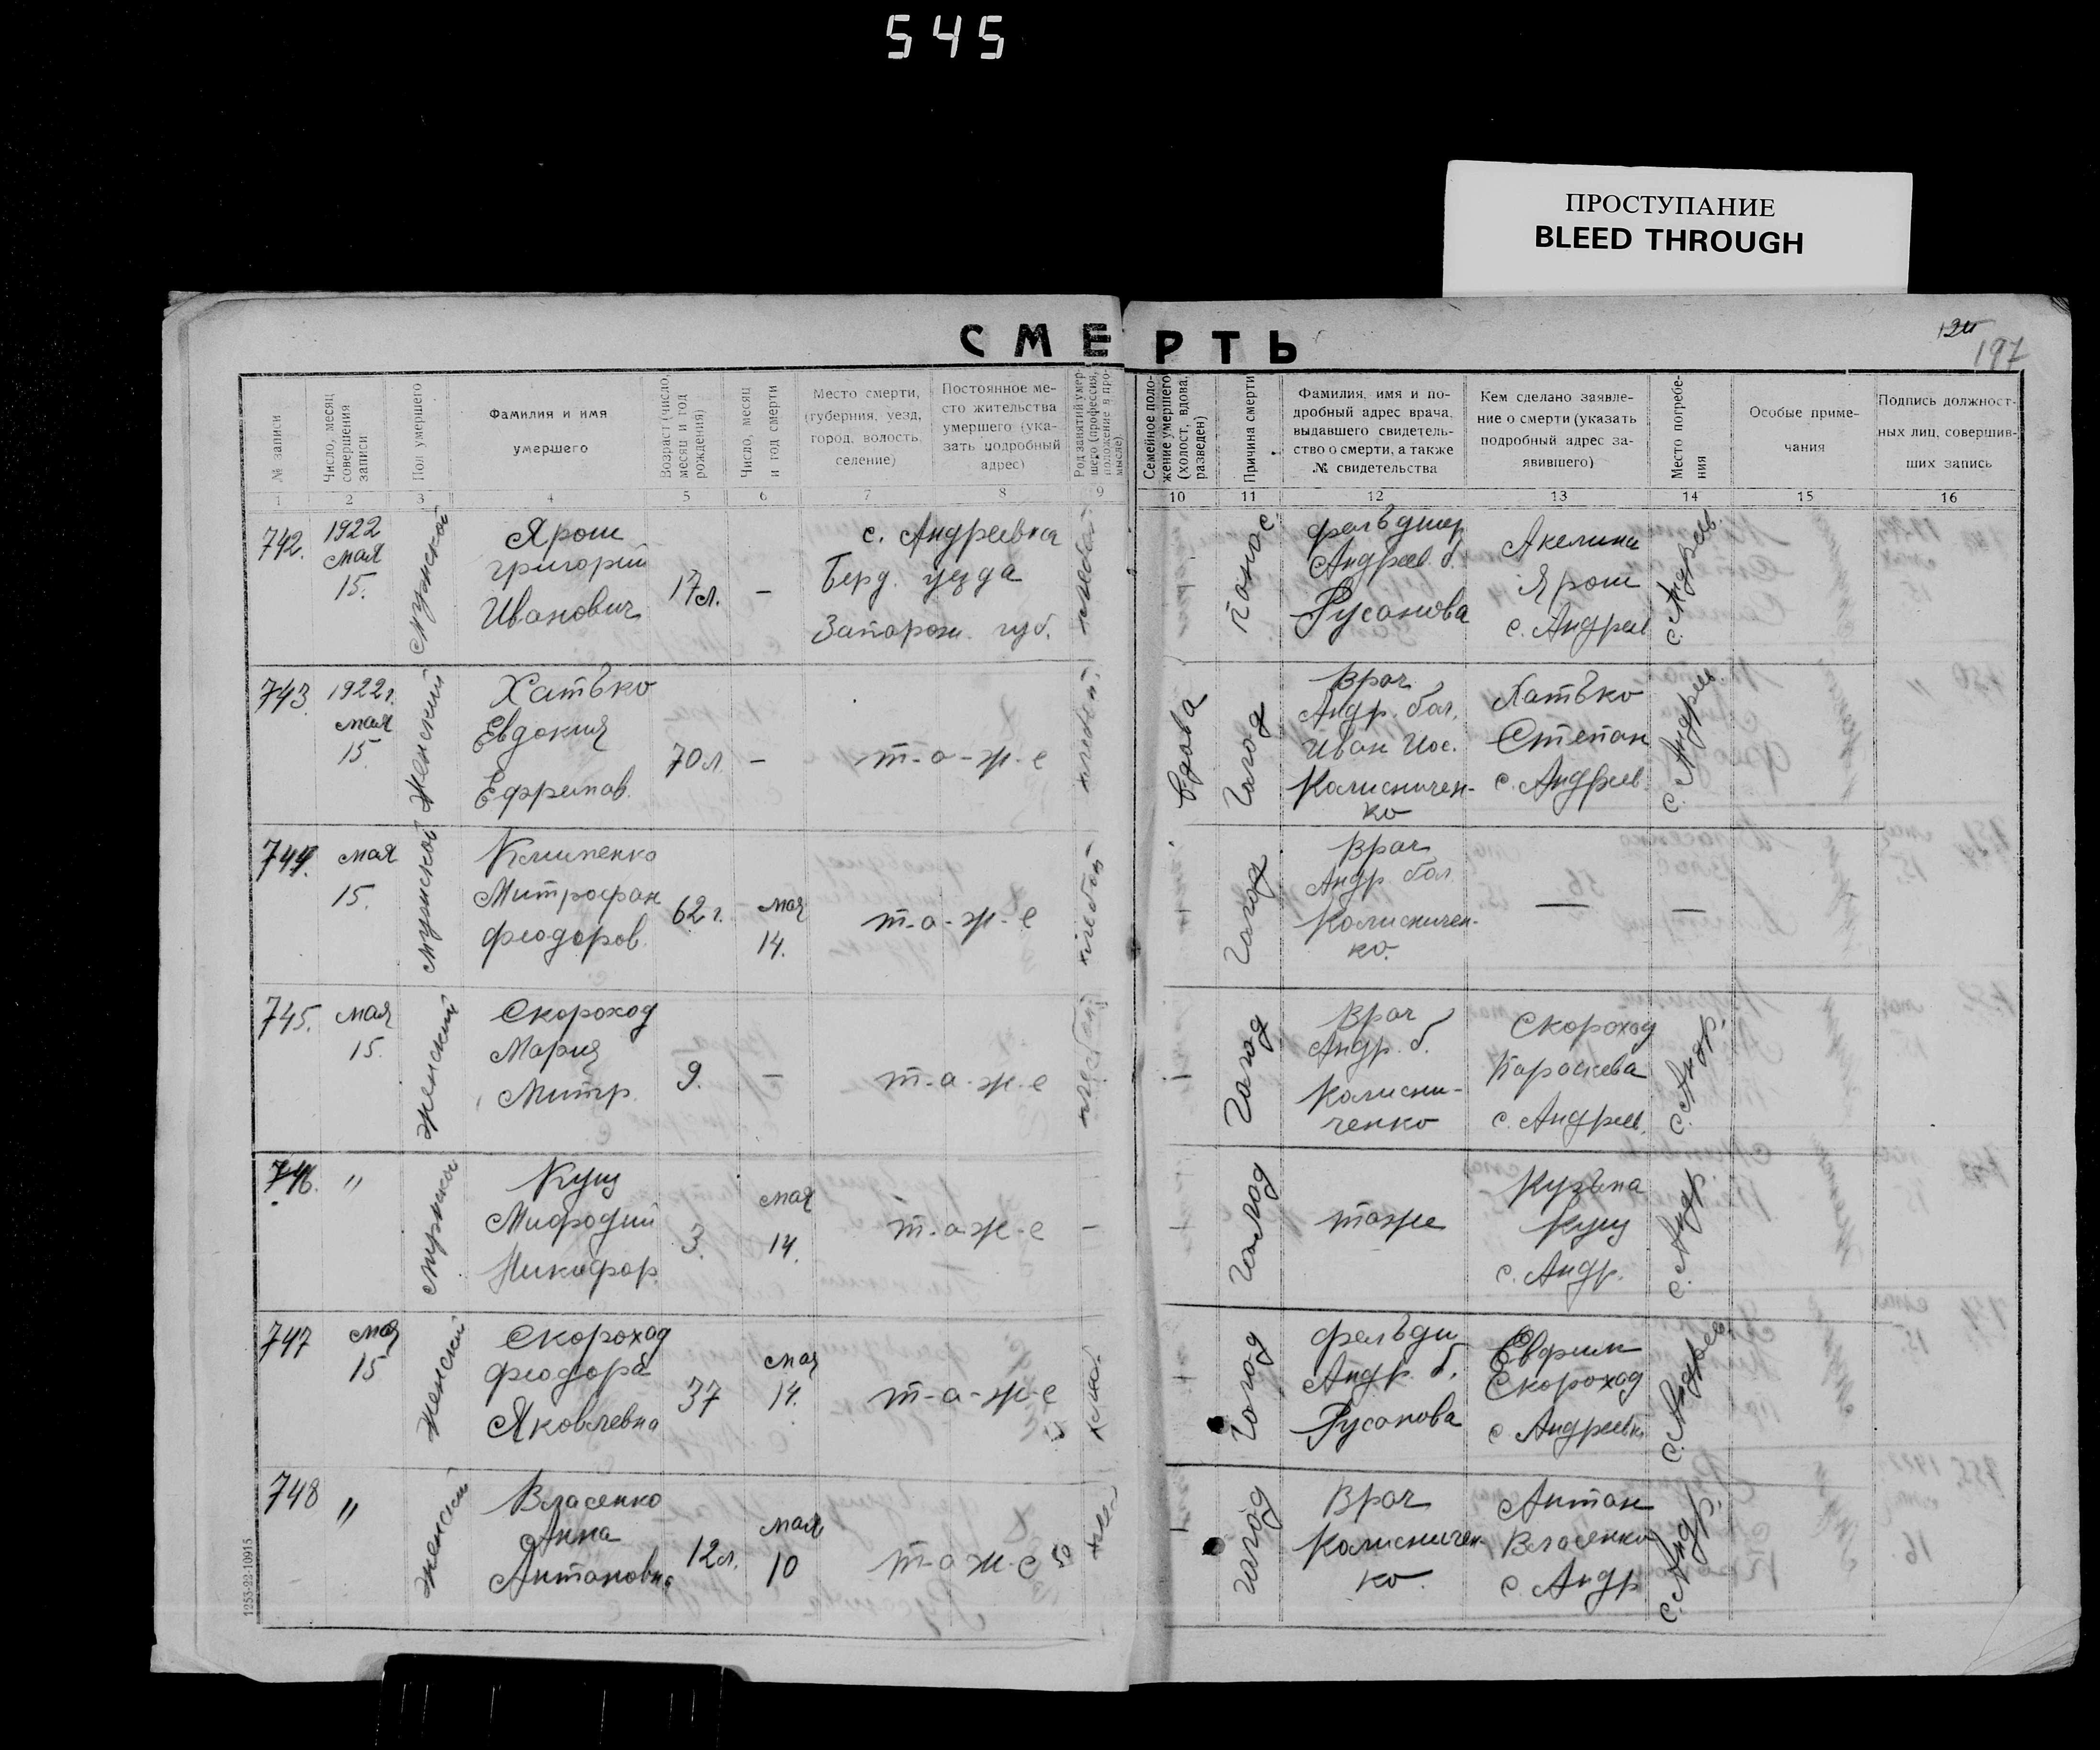 545
ПРОСТУПАНИЕ
BLEED THROUGH
СМЕРТЬ
197
№ записи
Число, месяц совершения записи
Пол умершего
Фамилия и имя
умершего
Возраст (число, месяц и год рождения)
Число, месяц и год смерти
Место смерти,
(губерния, уезд,
город, волость,
селение)
Постоянное ме-
сто жительства
умершего (ука-
зать подробный
адрес)
Род занятий умер-
шего (профессия,
положение в про-
мысле)
Семейное поло-
жение умершего
(холост, вдова,
разведен)
Причина смерти
Фамилия, имя и по-
дробный адрес врача,
выдавшего свидетель-
ство о смерти, а также
№ свидетельства
Кем сделано заявле-
ние о смерти (указать
подробный адрес за-
явившего)
Место погребе-
ния
Особые приме-
чания
Подпись должност-
ных лиц, совершив-
ших запись
1 2 3 4 5 6 7 8 9 10 11 12 13 14 15 16
742.
1922
мая
15.
Мужской
Ярош
Григорий
Иванович
17л.
—
с. Андреевка
Берд. уезда
Запорож. губ.
фельдшер
Андреев. б.
Русанова
Акелина
Ярош
с. Андреев
с. Андреев
743
1922г.
мая
15
Женский
Хатько
Евдокия
Ефримов.
70л
—
т-а-ж-е
вдова
Голод
Врач
Андр. бол.
Иван Иос.
Колисничен-
ко
Хатько
Степан
с. Андреев.
с. Андреев.
744.
мая
15.
Мужской
Клименко
Митрофан
Феодоров.
62г.
мая
14.
т-а-ж-е
Голод
Врач
Андр. бол.
Колисничен-
ко.
—
—
745.
мая
15.
Женский
Скороход
Мария
Митр.
9.
—
т-а-ж-е
Голод
Врач
Андр. б.
Колисни-
ченко
Скороход
Параскева
с. Андреев.
с. Андр.
746.
"
Мужской
Кущ
Мифодий
Никифор.
3.
мая
14.
т-а-ж-е
Голод
тоже
Кузьма
Кущ
с. Андр.
с. Андр.
747
мая
15
Женский
Скороход
Феодора
Яковлевна
37
мая
14.
т-а-ж-е
Голод
фельдш
Андр. б.
Русанова
Ефрим
Скороход
с. Андреевк
с. Андреев
748
"
Женский
Власенко
Анна
Антоновна
12л.
мая
10
т-а-ж-е
Голод
Врач
Колисничен-
ко.
Антон
Власенко
с. Андр
с. Андр.
1253-22-10915